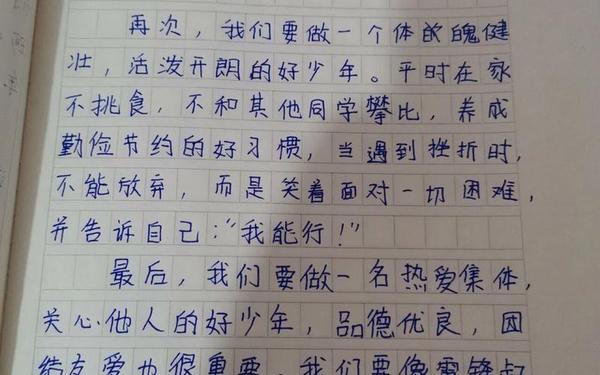 再次，我们要做一个体的魄健
壮，活泼开朗的好少年。平时在家
不挑食，不和其他同学攀比，养成
勤俭节约的好习惯，当遇到挫折时，
不能放弃，而是笑着面对一切困难，
并告诉自己："我能行！"
最后，我们要做一名热爱集体，
关心他人的好少年，品德优良，团
结友爱也很重要，我们要像雷锋叔